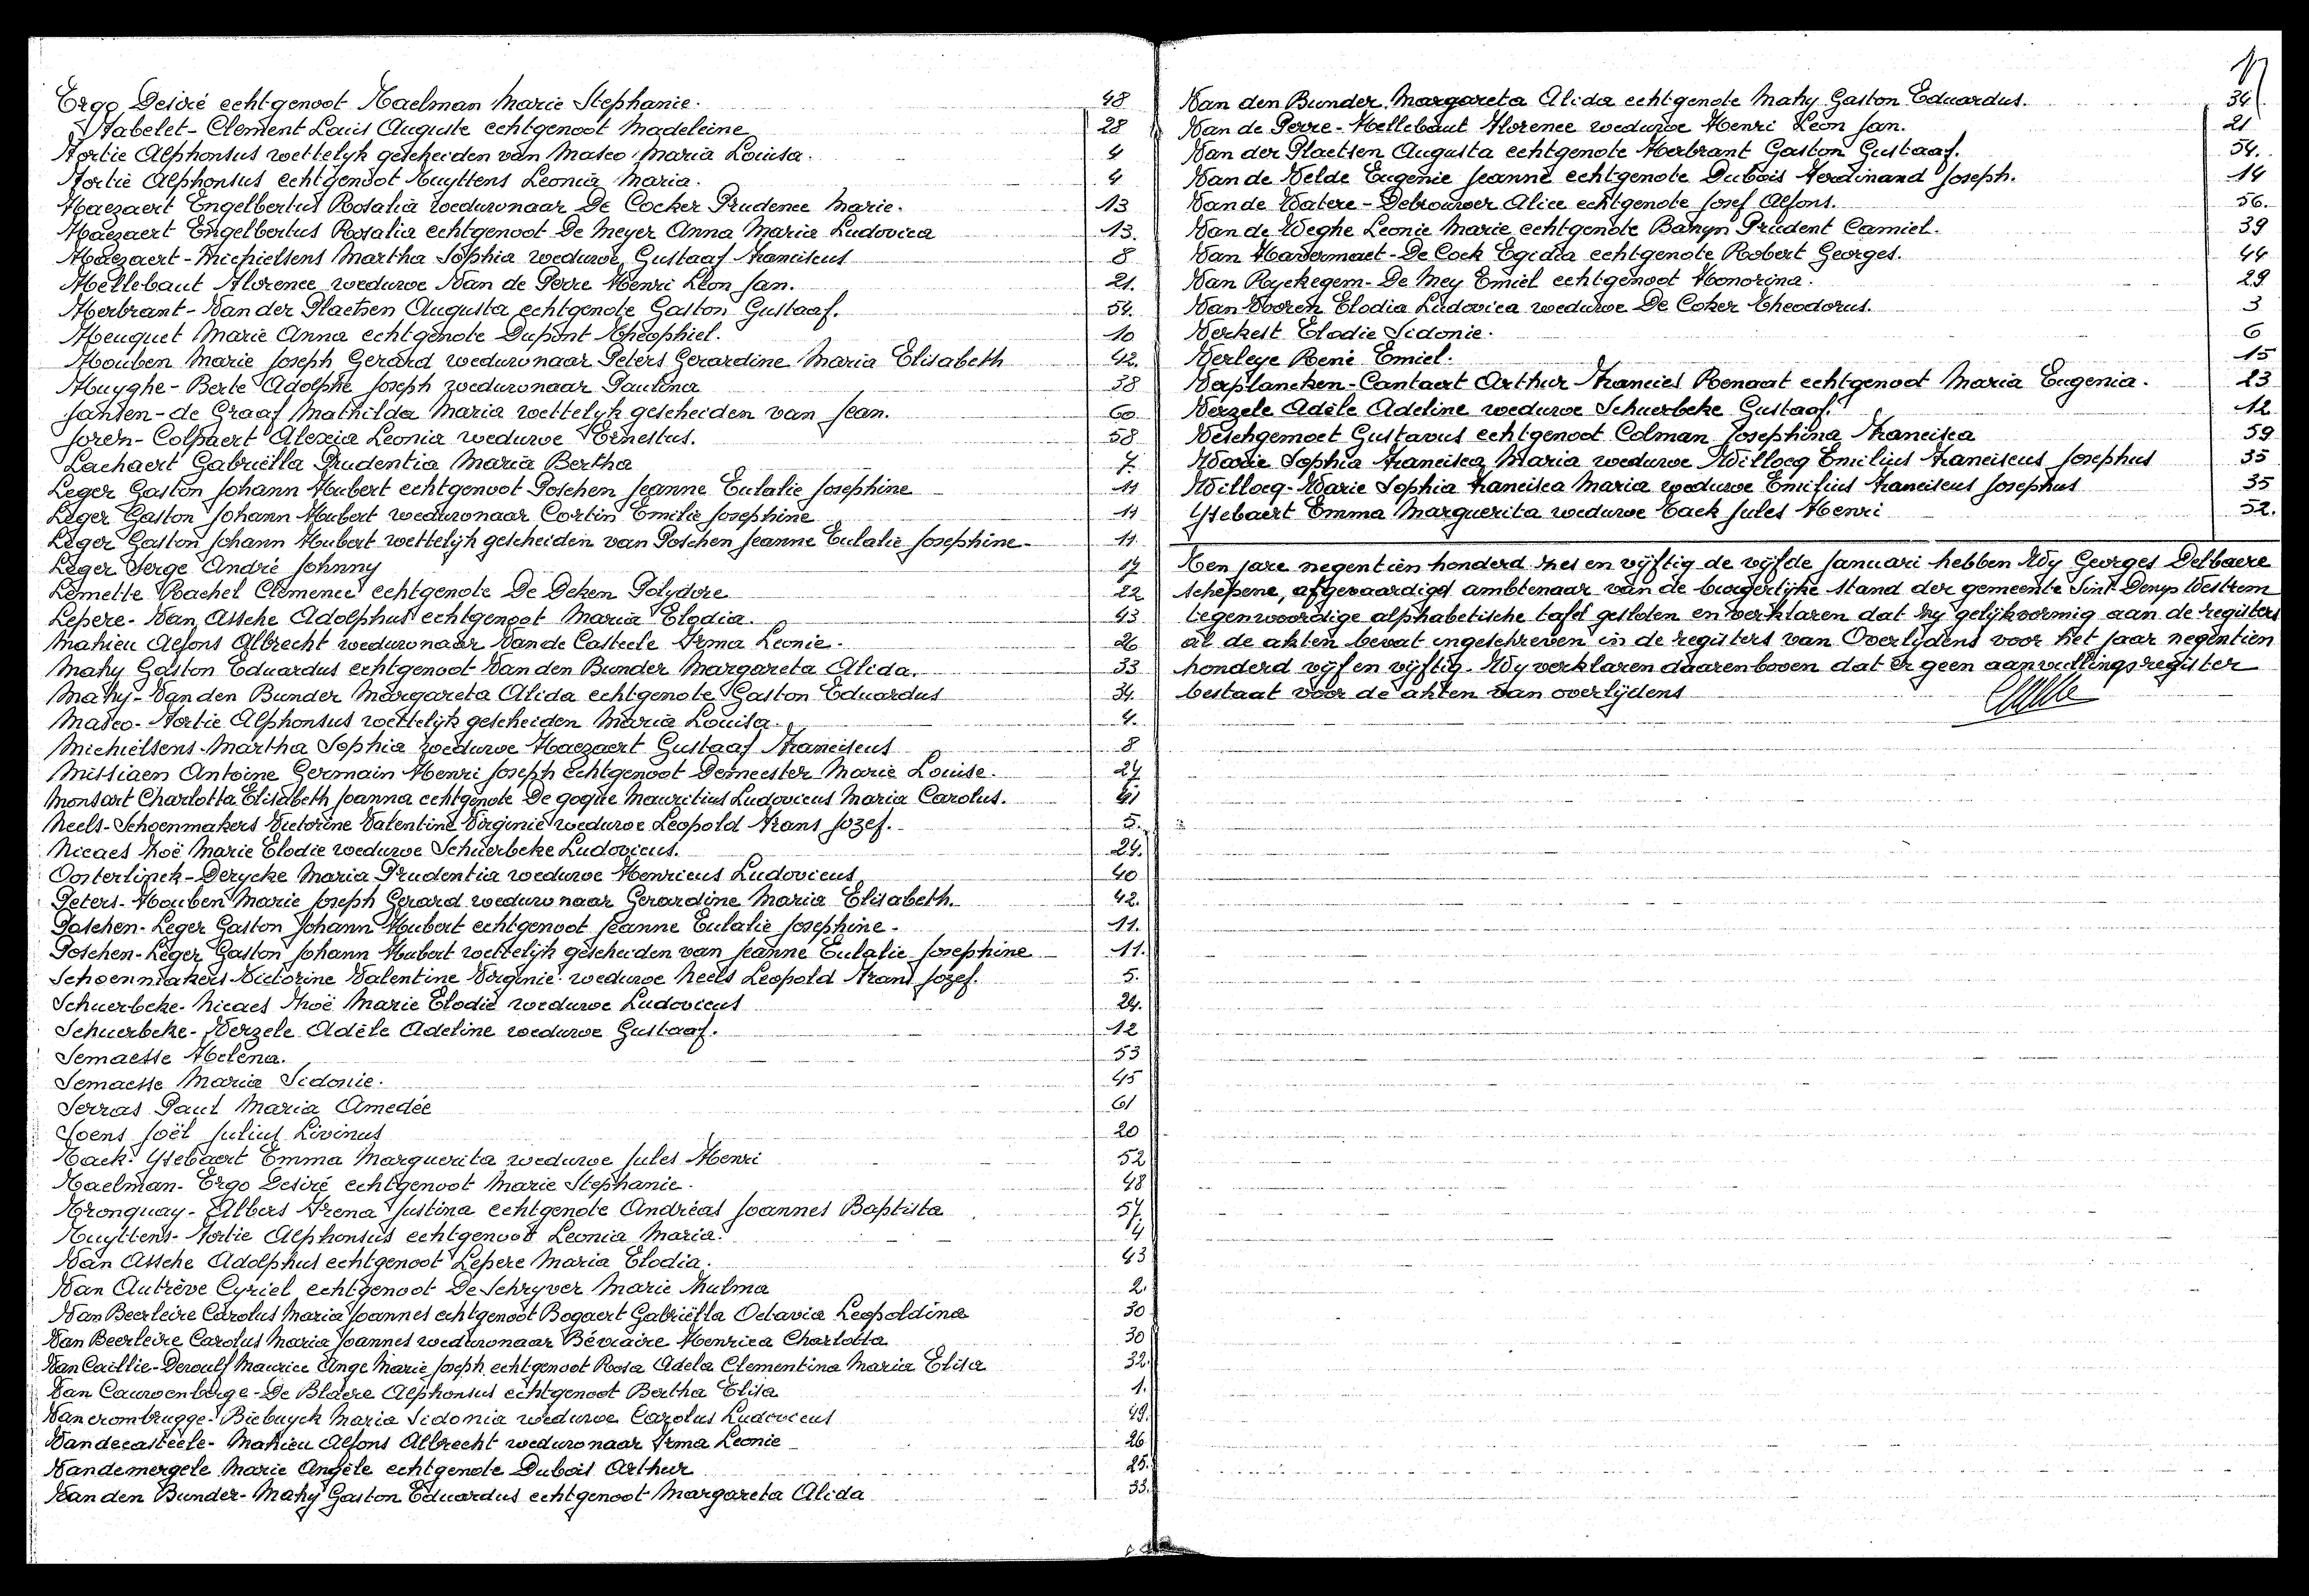 Ergo Desiré echtgenoot Taelman Marie Stephanie. 48
Flabelet-Clement Louis Auguste echtgenoot Madeleine 28
Fortie Alphonsus wettelyk gescheiden van Masco Maria Louisa. 4
Fortie Alphonsus echtgenoot Tuyttens Leonia Maria. 4
Haezaert Engelbertus Rosalia weduwnaar De Cocker Prudence Marie. 13
Haezaert Engelbertus Rosalia echtgenoot De Meyer Anna Maria Ludovica 13.
Haezaert-Michielsens Martha Sophia weduwe Gustaaf Franciscus 8
Hellebaut Florence weduwe Van de Perre Henri Léon Jan. 21.
Herbrant-Van der Plaetsen Augusta echtgenote Gaston Gustaaf. 54.
Heuquet Marie Anna echtgenote Dupont Theophiel. 10
Houben Marie Joseph Gerard weduwnaar Peters Gerardine Maria Elisabeth 42.
Huyghe-Berte Adolphe Joseph weduwnaar Paulina 38
Jansen-de Graaf Mathilda Maria wettelyk gescheiden van Jean. 60.
Joren-Colpaert Alexia Leonia weduwe Ernestus. 58
Lachaert Gabriëlla Prudentia Maria Bertha 7.
Leger Gaston Johann Hubert echtgenoot Poschen Jeanne Eulalie Josephine 11
Leger Gaston Johann Hubert weduwnaar Cortin Emilie Josephine 11
Leger Gaston Johann Hubert wettelijk gescheiden van Poschen Jeanne Eulalie Josephine 11.
Leger Serge André Johnny 17
Lemette Rachel Clemence echtgenote De Deken Polydore 22
Lepere-Van Assche Adolphus echtgenoot Maria Elodia. 43
Mahieu Alfons Albrecht weduwnaar Van de Casteele Irma Leonie. 26
Mahy Gaston Eduardus echtgenoot Van den Bunder Margareta Alida. 33
Mahy-Van den Bunder Margareta Alida echtgenote Gaston Eduardus 34.
Masco-Fortie Alphonsus wettelijk gescheiden Maria Louisa. 4.
Michielsens-Martha Sophia weduwe Haezaert Gustaaf Franciscus 8
Missiaen Antoine Germain Henri Joseph echtgenoot Demeester Marie Louise. 27
Monsart Charlotta Elisabeth Joanna echtgenote De gogue Mauritius Ludovicus Maria Carolus. 41
Neels-Schoenmakers Victorine Valentine Virginie weduwe Leopold Frans Jozef. 5.
Nicaes Zoë Marie Elodie weduwe Schuerbeke Ludovicus. 24.
Oosterlinck-Derycke Maria Prudentia weduwe Henricus Ludovicus 40
Peters-Houben Marie Joseph Gerard weduwnaar Gerardine Maria Elisabeth. 42.
Poschen-Leger Gaston Johann Hubert echtgenoot Jeanne Eulalie Josephine. 11.
Poschen-Leger Gaston Johann Hubert wettelijk gescheiden van Jeanne Eulalie Josephine 11.
Schoenmakers Victorine Valentine Virginie weduwe Neels Leopold Frans Jozef. 5.
Schuerbeke-Nicaes Zoë Marie Elodie weduwe Ludovicus 24.
Schuerbeke-Verzele Adèle Adeline weduwe Gustaaf. 12
Semaesse Helena. 53
Semaesse Maria Sidonie. 45
Serras Paul Maria Amedée 61
Soens Joël Julius Livinus 20
Tack-Ysebaert Emma Marguerita weduwe Jules Henri 52
Taelman-Ergo Desiré echtgenoot Marie Stephanie. 48
Tronquay-Albers Irena Justina echtgenote Andréas Joannes Baptista 57.
Tuyttens-Fortie Alphonsus echtgenoot Leonia Maria. 4
Van Assche Adolphus echtgenoot Lepere Maria Elodia. 43
Van Autrève Cyriel echtgenoot De Schryver Marie Zulma 2.
Van Beerleire Carolus Maria Joannes echtgenoot Bogaert Gabriëlla Octavia Leopoldina 30
Van Beerleire Carolus Maria Joannes weduwnaar Béviaire Henrica Charlotta 30
Van Caillie-Deroulf Maurice Ange Marie Joseph echtgenoot Rosa Adela Clementina Maria Elisa 32.
Van Cauwenberge-De Blaere Alphonsus echtgenoot Bertha Elisa 1.
Vancrombrugge-Biebuyck Maria Sidonia weduwe Carolus Ludovicus 49.
Vandecasteele-Mahieu Alfons Albrecht weduwnaar Irma Leonie 26
Vandemergele Marie Angèle echtgenote Dubois Arthur 25.
Van den Bunder-Mahy Gaston Eduardus echtgenoot Margareta Alida 33.
Van den Bunder Margareta Alida echtgenote Mahy Gaston Eduardus. 34
Van de Perre-Hellebaut Florence weduwe Henri Léon Jan. 21
Van der Plaetsen Augusta echtgenote Herbrant Gaston Gustaaf. 54.
Van de Velde Eugenie Jeanne echtgenote Dubois Ferdinand Joseph. 14
Van de Watere-Debrouwer Alice echtgenote Josef Alfons. 56.
Van de Weghe Leonie Marie echtgenote Banyn Prudent Camiel. 39
Van Havermaet-De Cock Egidia echtgenote Robert Georges. 44
Van Ryckegem-De Mey Emiel echtgenoot Honorina. 29
Van Vooren Elodia Ludovica weduwe De Coker Theodorus. 3
Verkest Elodie Sidonie. 6
Verleye René Emiel. 15
Verplancken-Cantaert Arthur Francies Renaat echtgenoot Maria Eugenia. 23
Verzele Adèle Adeline weduwe Schuerbeke Gustaaf. 12
Veschgemoet Gustavus echtgenoot Colman Josephina Francisca 59
Warie Sophia Francisca Maria weduwe Willocq Emilius Franciscus Josephus 35
Willocq-Warie Sophia Francisca Maria weduwe Emilius Franciscus Josephus 35
Ysebaert Emma Marguerita weduwe Tack Jules Henri 52.
Ten jare negentien honderd zes en vijftig de vijfde Januari hebben Wy Georges Delbaere
schepene, afgevaardigd ambtenaar van de burgerlijke stand der gemeente Sint Denys Westrem
tegenwoordige alphabetische tafel gesloten en verklaren dat zy gelijkvormig aan de registers
al de akten bevat ingeschreven in de registers van Overlijdens voor het jaar negentien
honderd vijf en vijftig. Wy verklaren daarenboven dat er geen aanvullingsregister
bestaat voor de akten van overlijdens